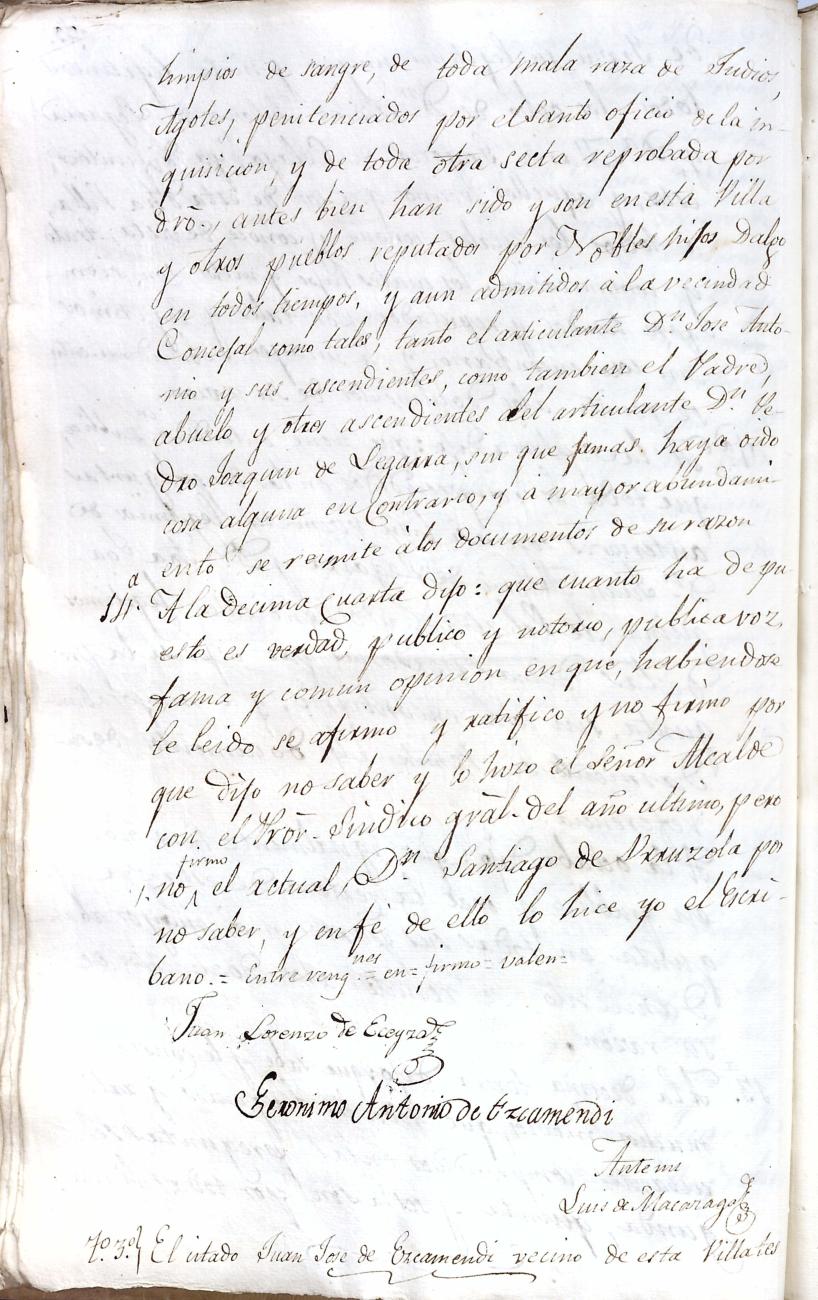 limpios de sangre, de toda mala raza de Judios,
Agotes, penitenciados por el Santo oficio de la in-
quisicion, y de toda otra secta reprobada por
dro., antes bien han sido y son en esta Villa
y otros pueblos reputados por Nobles hijos Dalgo
en todos tiempos, y aun admitidos à la vecindad
Concejal como tales, tanto el articulante Dn. Jose Anto-
nio y sus ascendientes, como tambien el Padre,
abuelo y otros ascendientes del articulante Dn. Pe-
dro Joaquin de Legarra, sin que jamas haya oido
cosa alguna en Contrario, y à mayor abundami-
ento se remite à los documentos de su razon
14.a A la decima Cuarta dijo: que cuanto ha depu-
esto es verdad, publico y notorio, publica voz,
fama y comun opinion en que, habiendose
le leido se afirmo y ratifico y no firmo por
que dijo no saber y lo hizo el Señor Alcalde
con el Pror. Sindico gral. del año ultimo, pero
no firmo el actual, Dn. Santiago de Urruzola por
no saber, y en fé de ello lo hice yo el Escri-
bano.= Entre rengnes = en = firmo = valen =
Juan Lorenzo de Eceyza
Geronimo Antonio de Ezcamendi
Antemi
Luis de Macazaga
To. 3o. El citado Juan Jose de Ezcamendi vecino de esta Villa tes